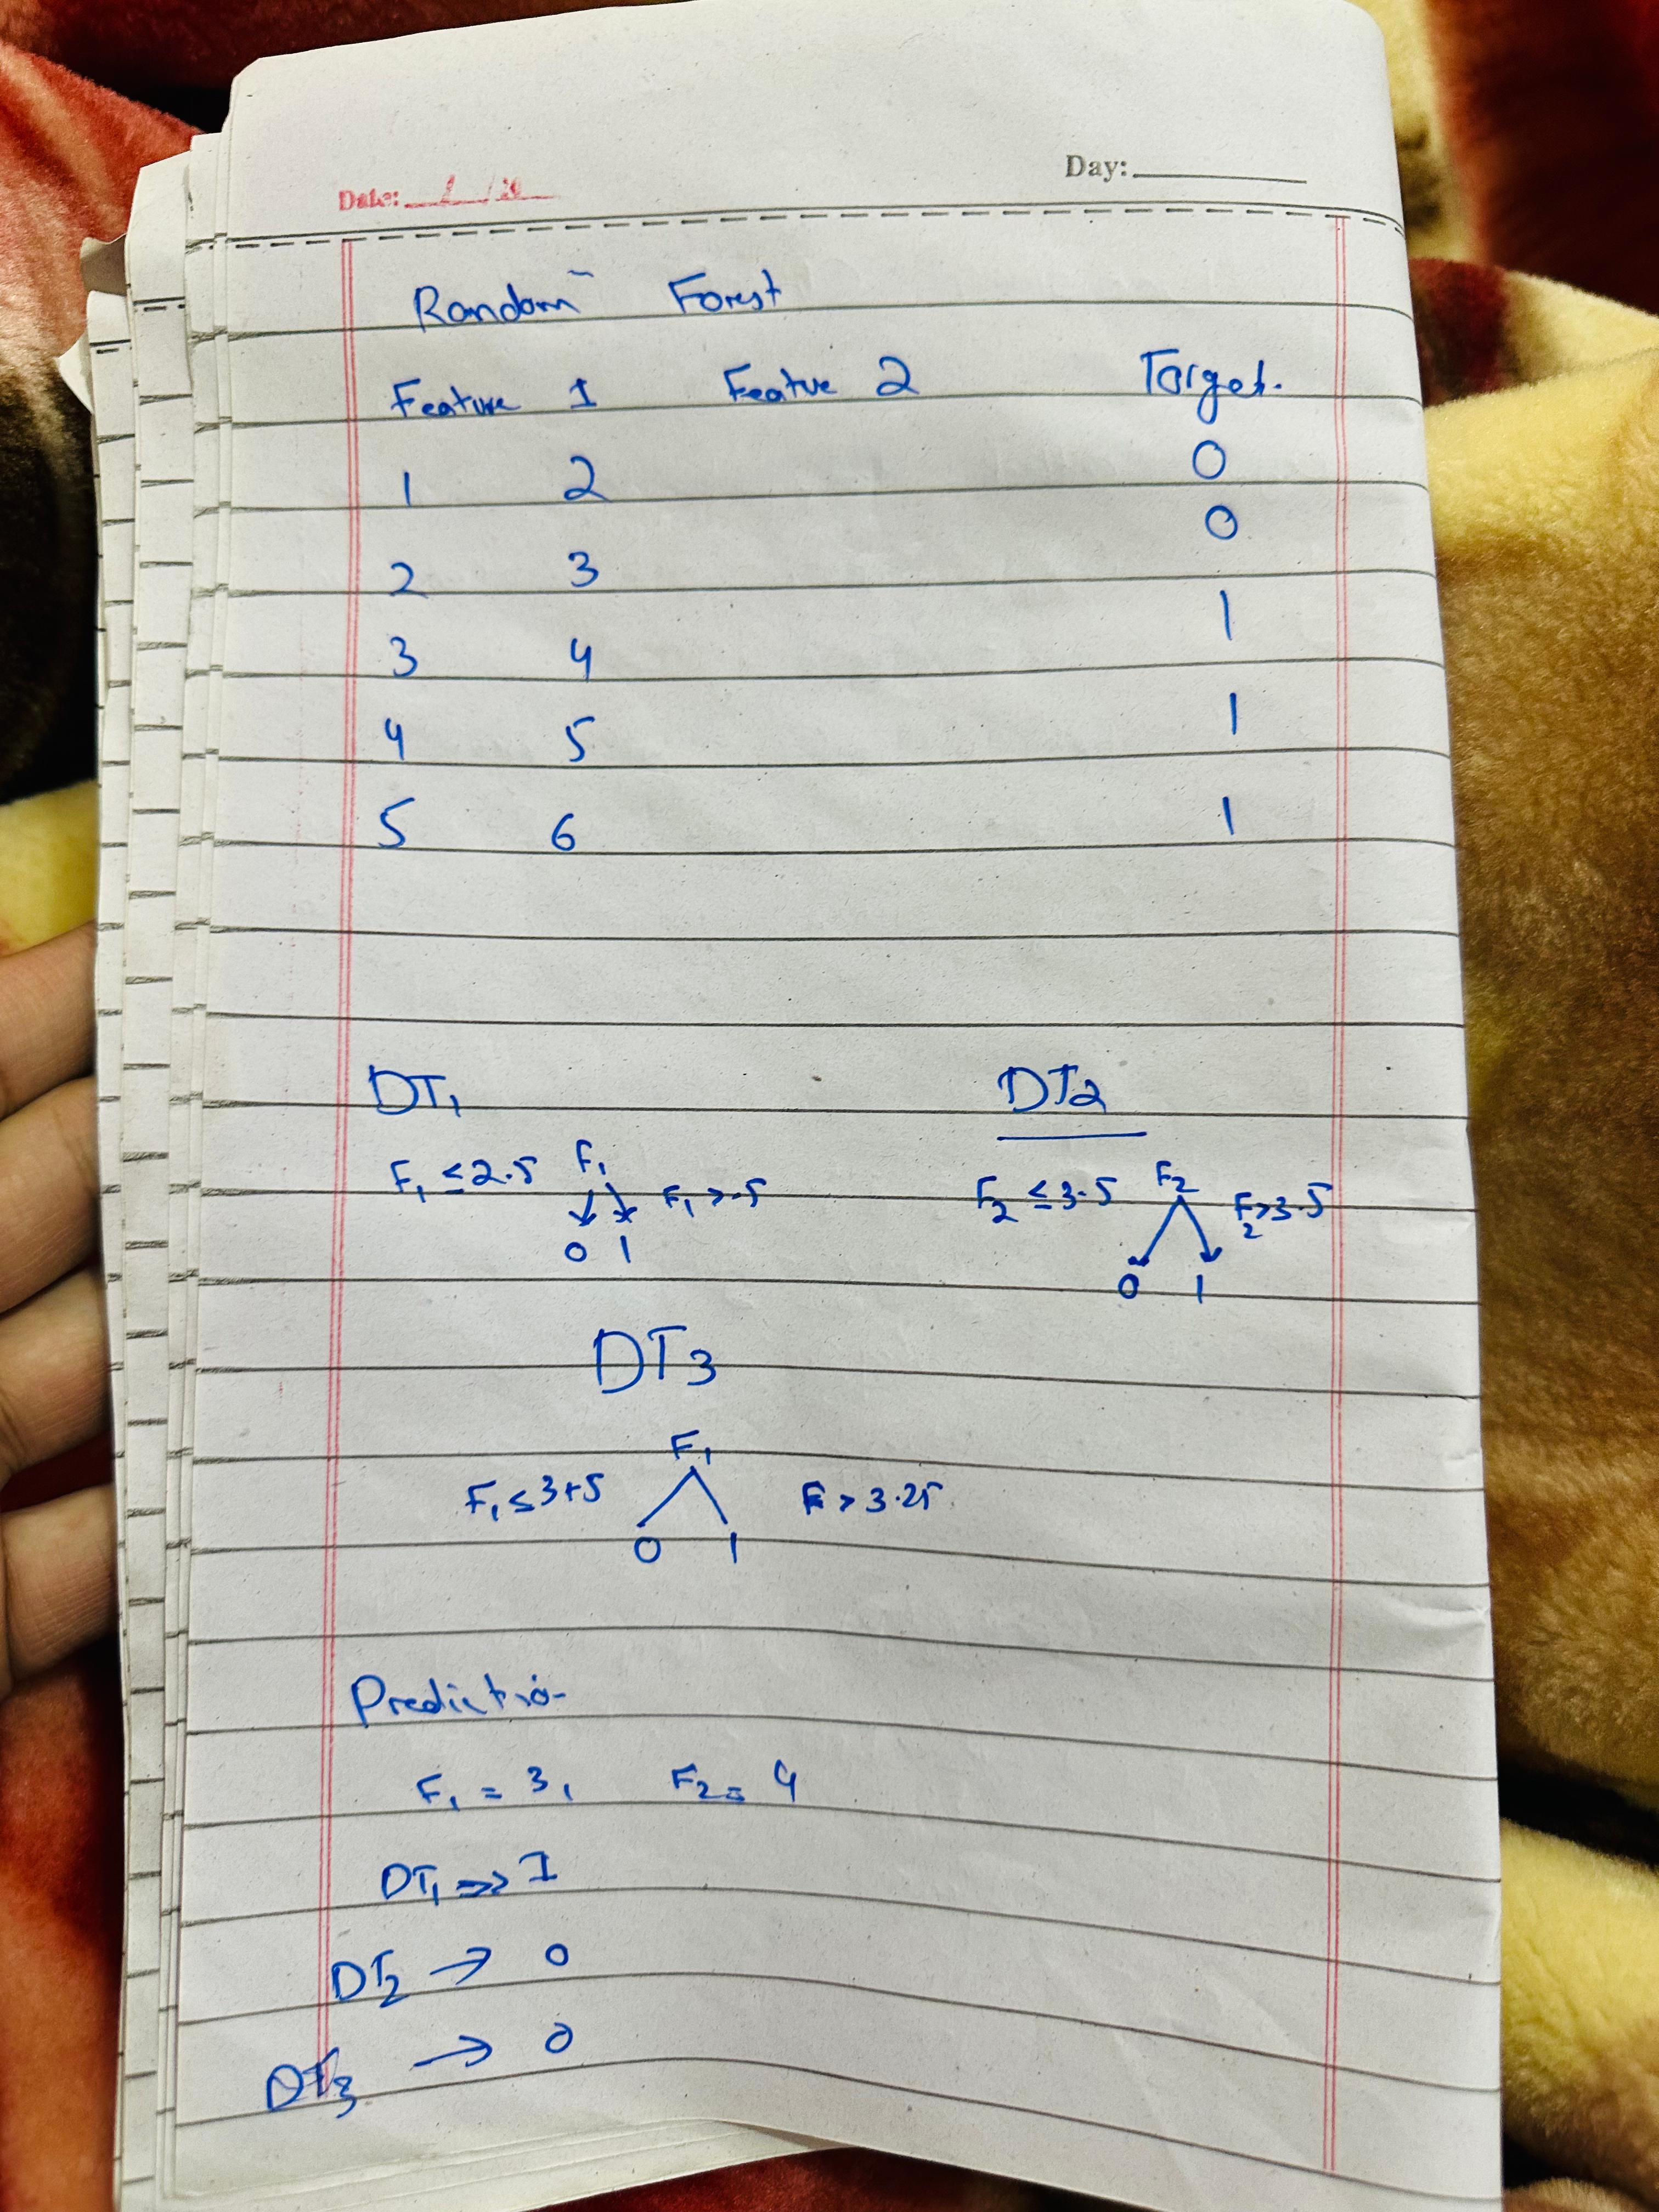 Day:
Date: / /20
Random Forest
Feature 1 Featue 2 Target.
1 2 0
2 3 0
3 4 1
4 5 1
5 6 1
DT1 DT2
F1 ≤ 2.5 F1 F1 > .5 F2 ≤ 3.5 F2 F2 > 3.5
0 1 0 1
DT3
F1
F1 ≤ 3+5 F > 3.25
0 1
Prediction
F1 = 3, F2 = 4
DT1 ⇒ 1
DT2 → 0
DT3 → 0